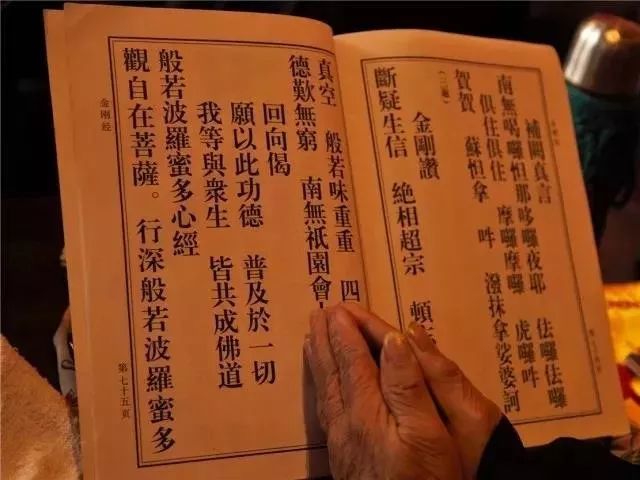 補闕真言
南無喝囉怛那哆囉夜耶 佉囉佉囉
俱住俱住 摩囉摩囉 虎囉吽
賀賀 蘇怛拏 吽 潑抹拏娑婆訶
(三遍)
金剛讚
斷疑生信 絕相超宗 頓
真空 般若味重重 四
德歎無窮 南無祇園會
回向偈
願以此功德 普及於一切
我等與衆生 皆共成佛道
般若波羅蜜多心經
觀自在菩薩。行深般若波羅蜜多
金剛經
第七十五頁